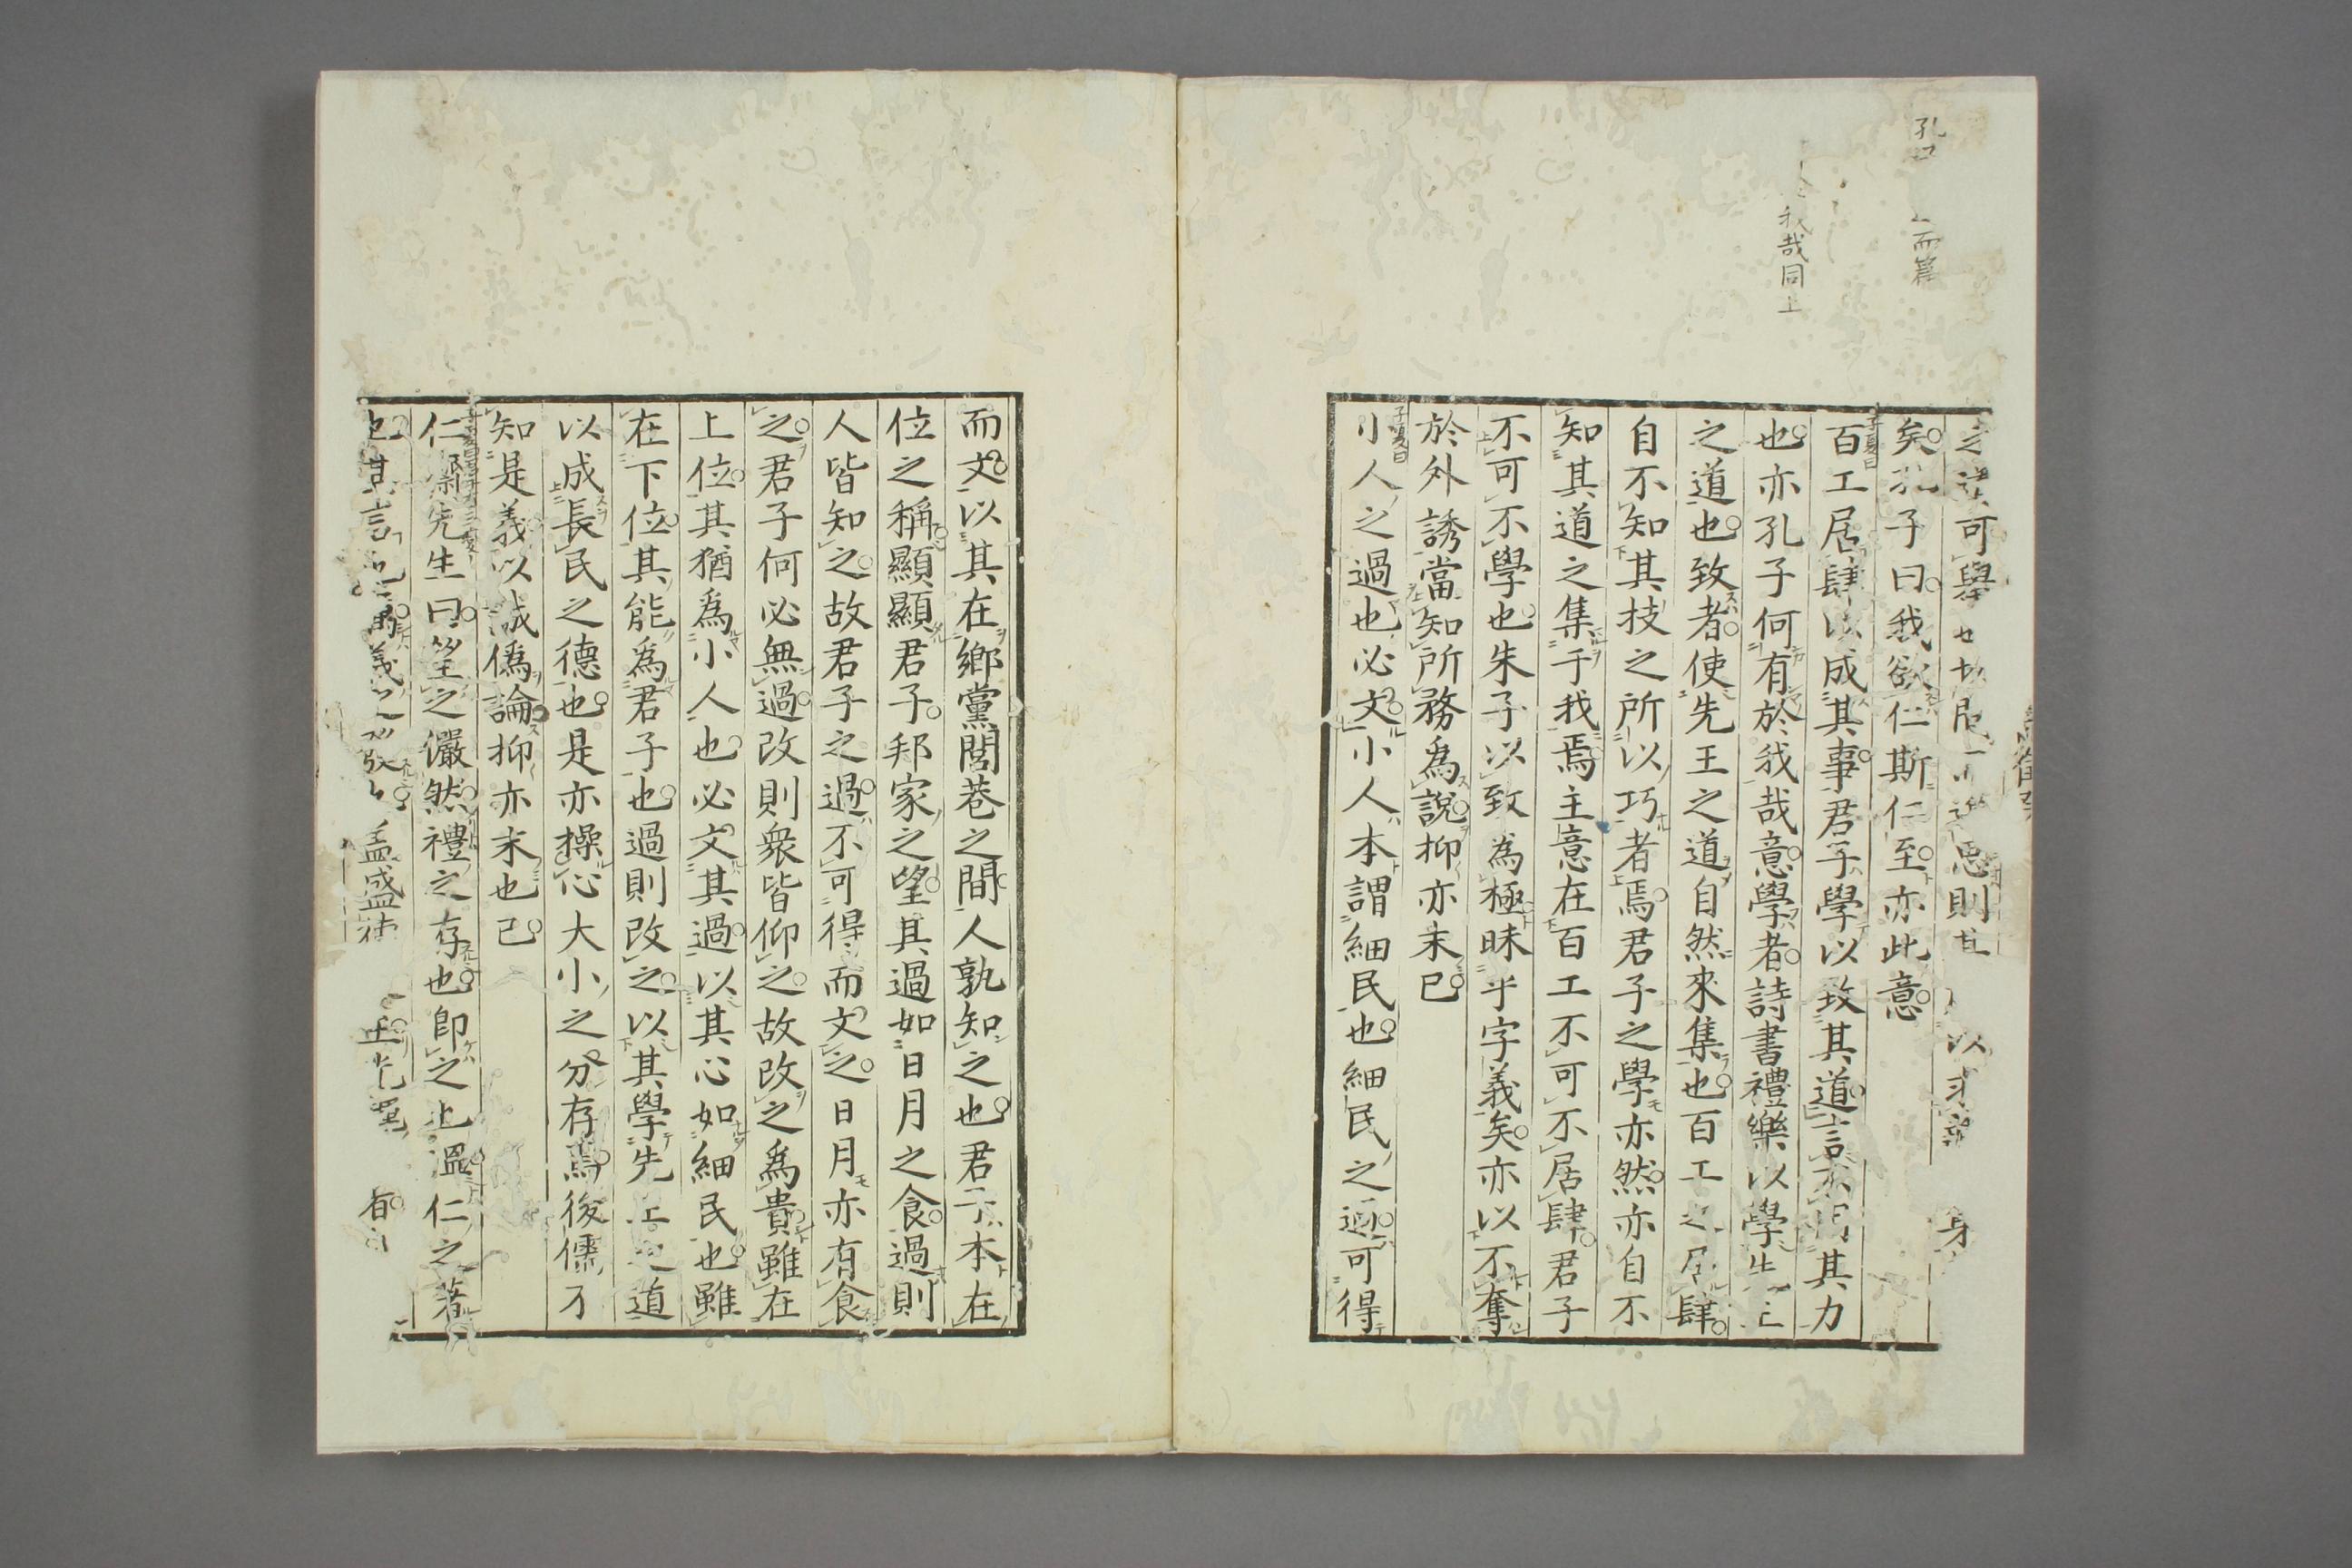 可學
則
以求
矣孔子曰我欲仁斯仁至亦此意
子夏曰
百工居肆以成其事君子學以致其道言不同其力
也亦孔子何有於我哉意學者詩書禮樂以學先王
之道也致者使先王之道自然來集也百工之居肆
自不知其技之所以巧者焉君子之學亦然亦自不
知其道之集于我焉主意在百工不可不居肆君子
不可不學也朱子以致為極昧乎字義矣亦以不奪
於外誘當知所務為說抑亦末已
子夏曰
小人之過也必文小人本謂細民也細民之過可得
而文以其在鄉黨閭巷之間人孰知之也君子本在
位之稱顯顯君子邦家之望其過如日月之食過則
人皆知之故君子之過不可得而文之日月亦有食
之君子何必無過改則衆皆仰之故改之為貴雖在
上位其猶為小人也必文其過以其心如細民也雖
在下位其能為君子也過則改之以其學先王之道
以成長民之德也是亦操心大小之分存焉後儒不
知是義以誠僞論抑亦末也已
仁齋先生曰望之儼然禮之存也即之也溫仁之著
也其言也厲義之發
盂盛
孔 而篇
我哉同上